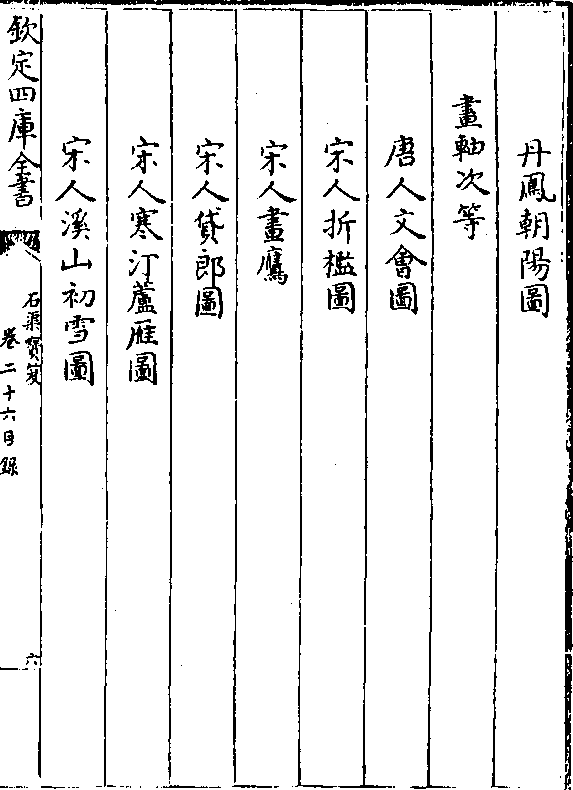 丹鳳朝陽圖
畫軸次等
唐人文會圖
宋人折檻圖
宋人畫鷹
宋人貸郎圖
宋人寒汀蘆雁圖
宋人溪山初雪圖
欽定四庫全書
石渠寳笈
卷二十六目錄
六